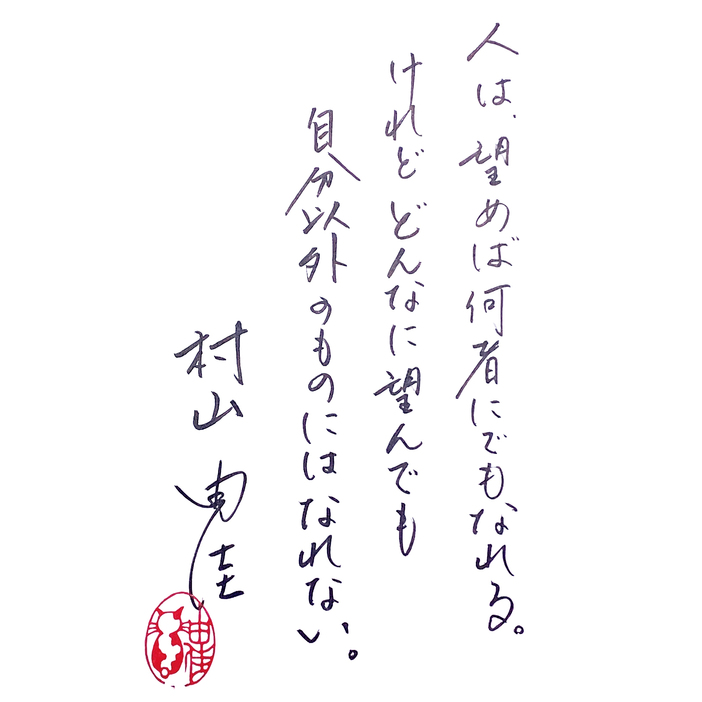 人は、望めば何者にでもなれる。
けれど どんなに望んでも
自分以外のものにはなれない。
村山由佳
由佳